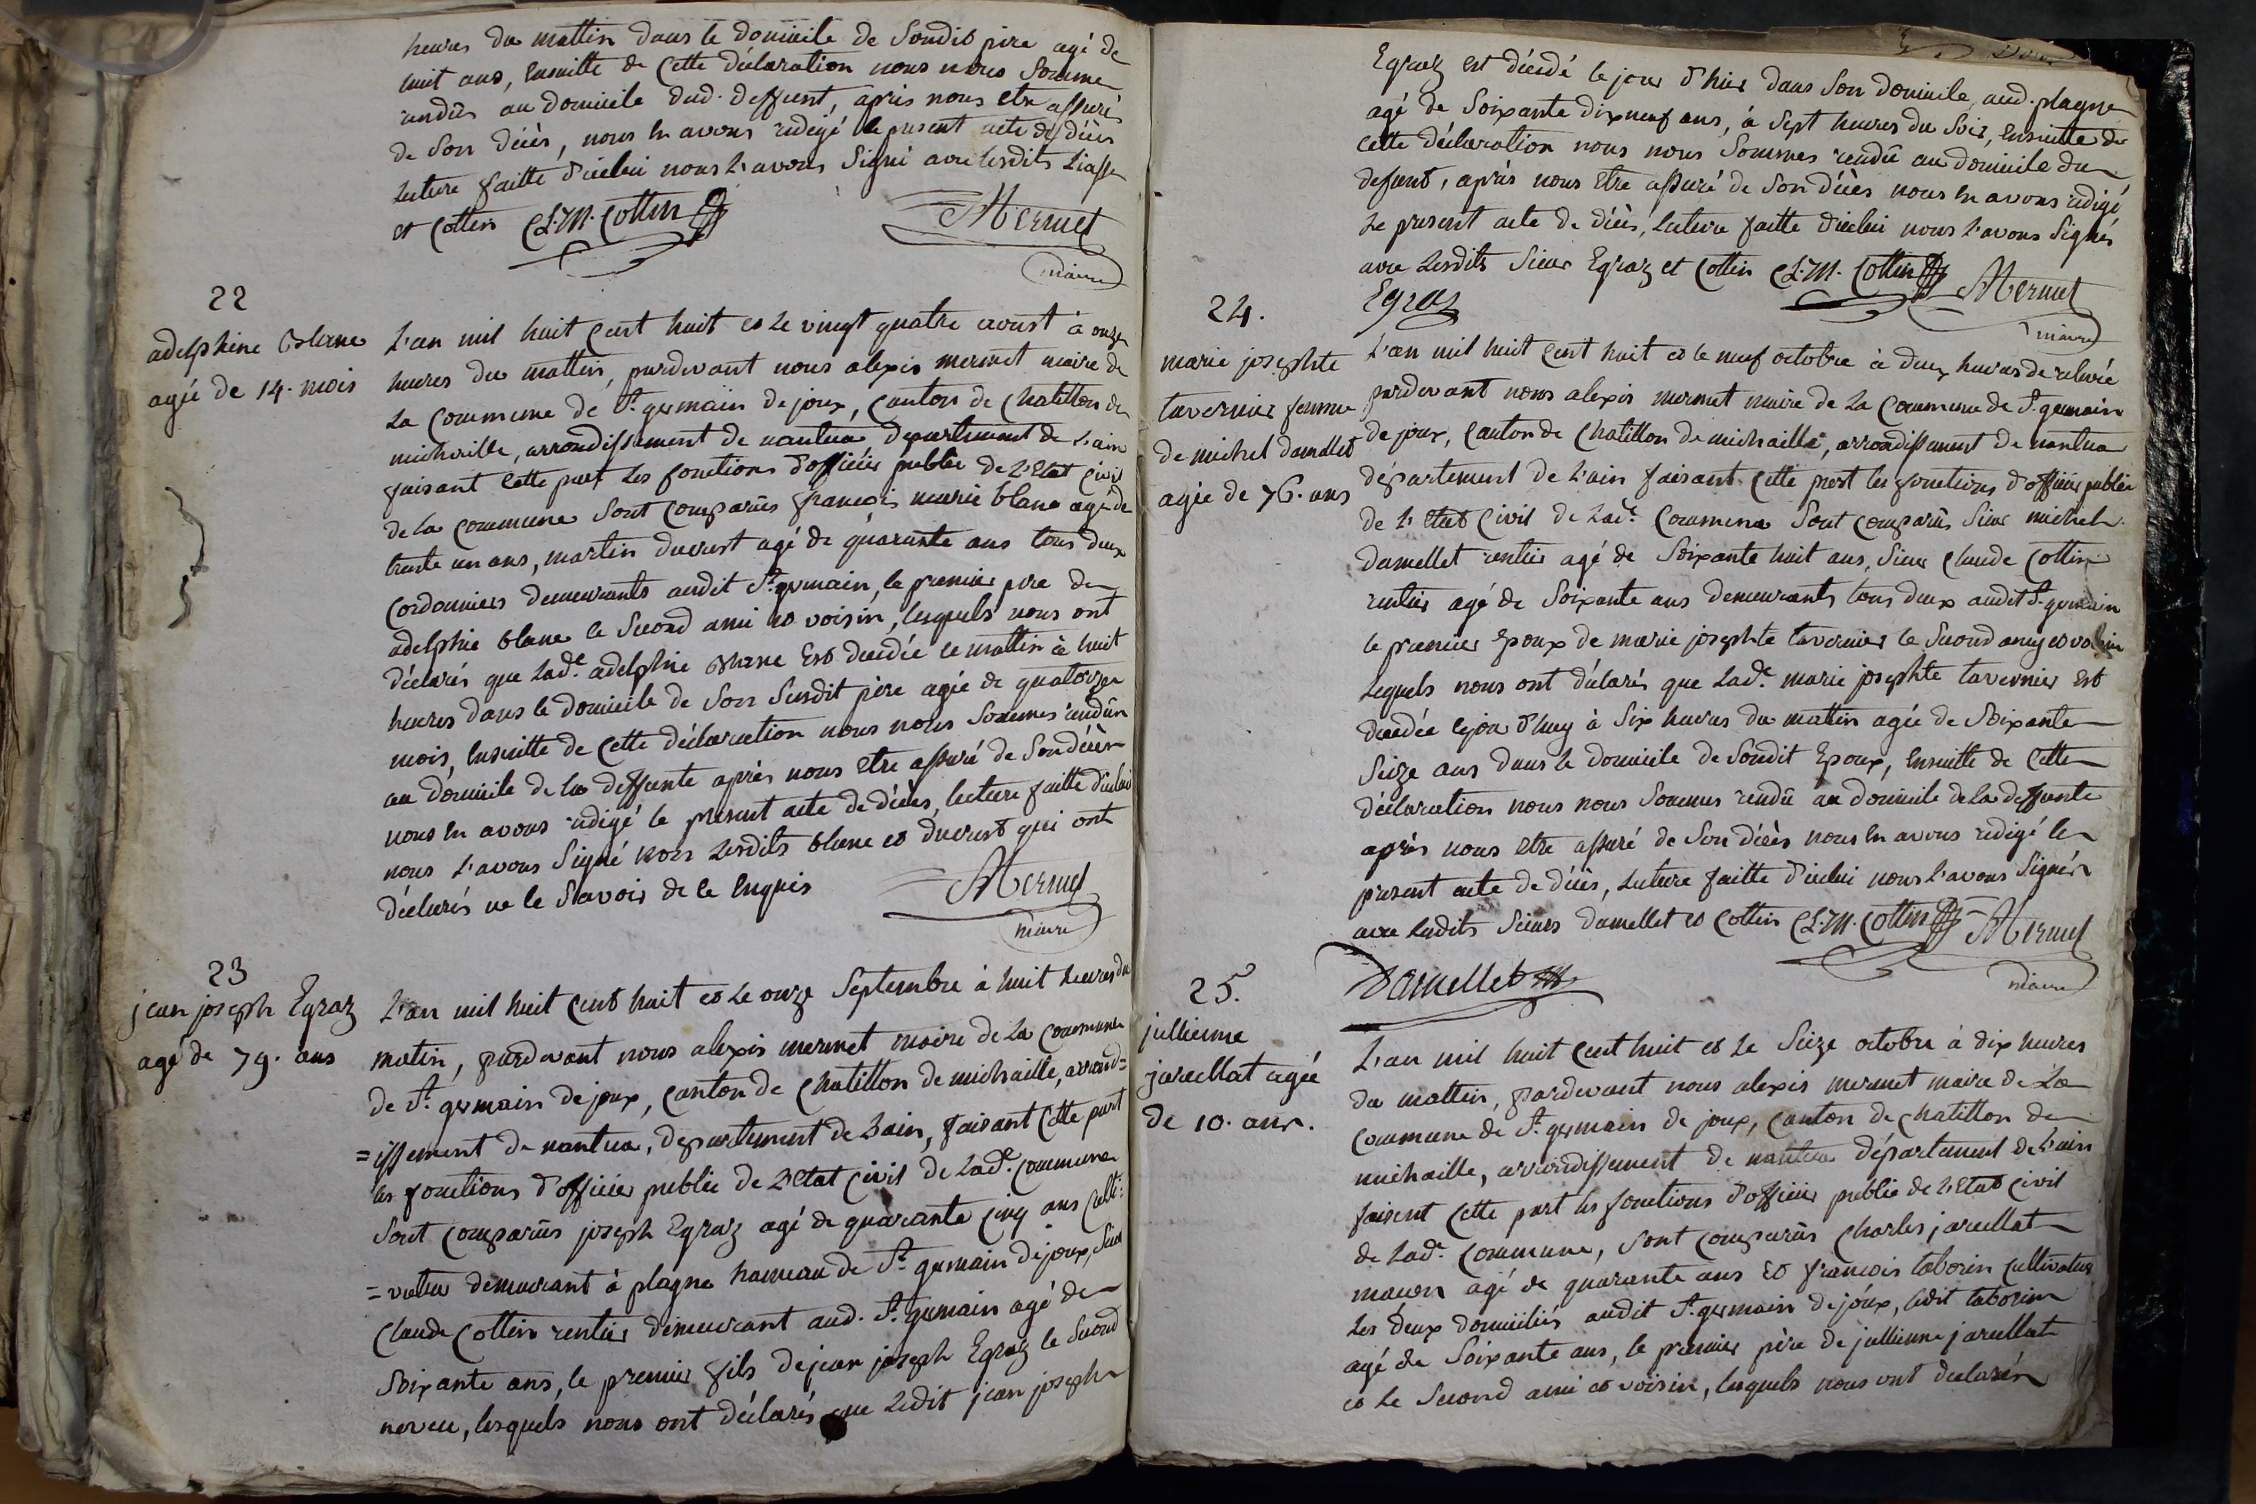 heures du mattin dans le domicile de Sondit pere agé de
huit ans, Ensuitte de Cette déclaration nous nous Somme
rendûs au domicile dud. deffunt, après nous etre assurés
de Son décès, nous en avons redigé le present acte de décès
lecture faitte d'icelui nous l'avons Signé avec lesdits
et Cottin CL. M. Cottin Mermet
maire
22
adelphine Blanc
agée de 14. mois
L'an mil huit Cent huit et le vingt quatre aoust à onze
heures du mattin, pardevant nous alexis mermet maire de
la Commune de St. germain de joux, Canton de Chatillon de
michaille, arrondissement de nantua, département de l'ain
faisant Cette part les fonctions d'officier public de l'Etat Civil
de la Commune Sont Comparûs françois marie blanc agé de
trente un ans, martin ducrest agé de quarante ans tous deux
Cordonniers demeurants audit St. germain, le premier pere de
adelphie blanc le Second ami et voisin, lesquels nous ont
déclarés que lade. adelphie Blanc Est décédée ce mattin à huit
heures dans le domicile de Son Susdit père agée de quatorze
mois, Ensuitte de Cette déclaration nous nous Sommes rendûs
au domicile de la deffunte après nous etre assuré de Son décès
nous En avons redigé le present acte de décès, lecture faitte d'icelui
nous l'avons Signé non lesdits blanc et ducrest qui ont
déclarés ne le Savoir de ce Enquis Mermet
maire
23
jean joseph Egraz
agé de 79. ans
L'an mil huit Cent huit et le onze Septembre à huit heures du
matin, pardevant nous alexis mermet maire de la Commune
de St. germain de joux, Canton de Chatillon de michaille, arrond=
=issement de nantua, département de l'ain, faisant Cette part
les fonctions d'officier public de l'Etat Civil de lade. Commune
Sont Comparûs joseph Egraz agé de quarante Cinq ans Culti=
=vateur demeurant à plagne hameau de St. germain de joux, Sieur
Claude Cottin rentier demeurant aud. St. germain agé de
Soixante ans, le premier fils de jean joseph Egraz le Second
neveu, lesquels nous ont déclarés que Ledit jean joseph
Egraz est décédé le jour d'hier dans Son domicile, aud. plagne
agé de Soixante dixneuf ans, à Sept heures du Soir, Ensuitte de
Cette déclaration nous nous Sommes rendû au domicile du
defunt, après nous Etre assuré de Son décès nous en avons redigé
Le present acte de décès, Lecture faitte d'icelui nous l'avons Signés
avec Lesdits Sieur Egraz et Cottin CL. M. Cottin Mermet
Egraz
maire
24.
marie josephte
tavernier femme
de michel damellet
agée de 76. ans
L'an mil huit Cent huit et le neuf octobre à deux heures de relevée
pardevant nous alexis mermet maire de la Commune de St. germain
de joux, Canton de Chatillon de michaille, arrondissement de nantua
département de l'ain faisant Cette part les fonctions d'officier public
de l'Etat Civil de lade. Commune Sont Comparûs Sieur michel
damellet rentier agé de Soixante huit ans, Sieur Claude Cottin
rentier agé de Soixante ans demeurants tous deux audit St. germain
le premier Epoux de marie josephte tavernier le Second amy et voisin
Lequels nous ont déclarés que lade. marie josephte tavernier Est
décédée cejour d'huy à Six heures du mattin agée de Soixante
Seize ans dans le domicile de Sondit Epoux, Ensuitte de Cette
déclaration nous nous Sommes rendû au domicile de la deffunte
après nous etre assuré de Son décès nous en avons redigé le
present acte de décès, Lecture faitte d'icelui nous l'avons Signés
avec Lesdits Sieurs damellet et Cottin CL. M. Cottin Mermet
Damellet
maire
25.
jullienne
jarcellat agée
de 10. ans.
L'an mil huit Cent huit et le Seize octobre à dix heures
du mattin, pardevant nous alexis mermet maire de La
Commune de St. germain de joux, Canton de Chatillon de
michaille, arrondissement de nantua département de l'ain
faisent Cette part les fonctions d'officier public de l'Etat Civil
de lade. Commune, Sont Comparûs Charles jarcellat
maçon agé de quarante ans et françois taborin Cultivateur
Les deux domiciliés audit St. germain de joux, ledit taborin
agé de Soixante ans, le premier père de jullienne jarcellat
et Le Second ami et voisin, lesquels nous ont declarés